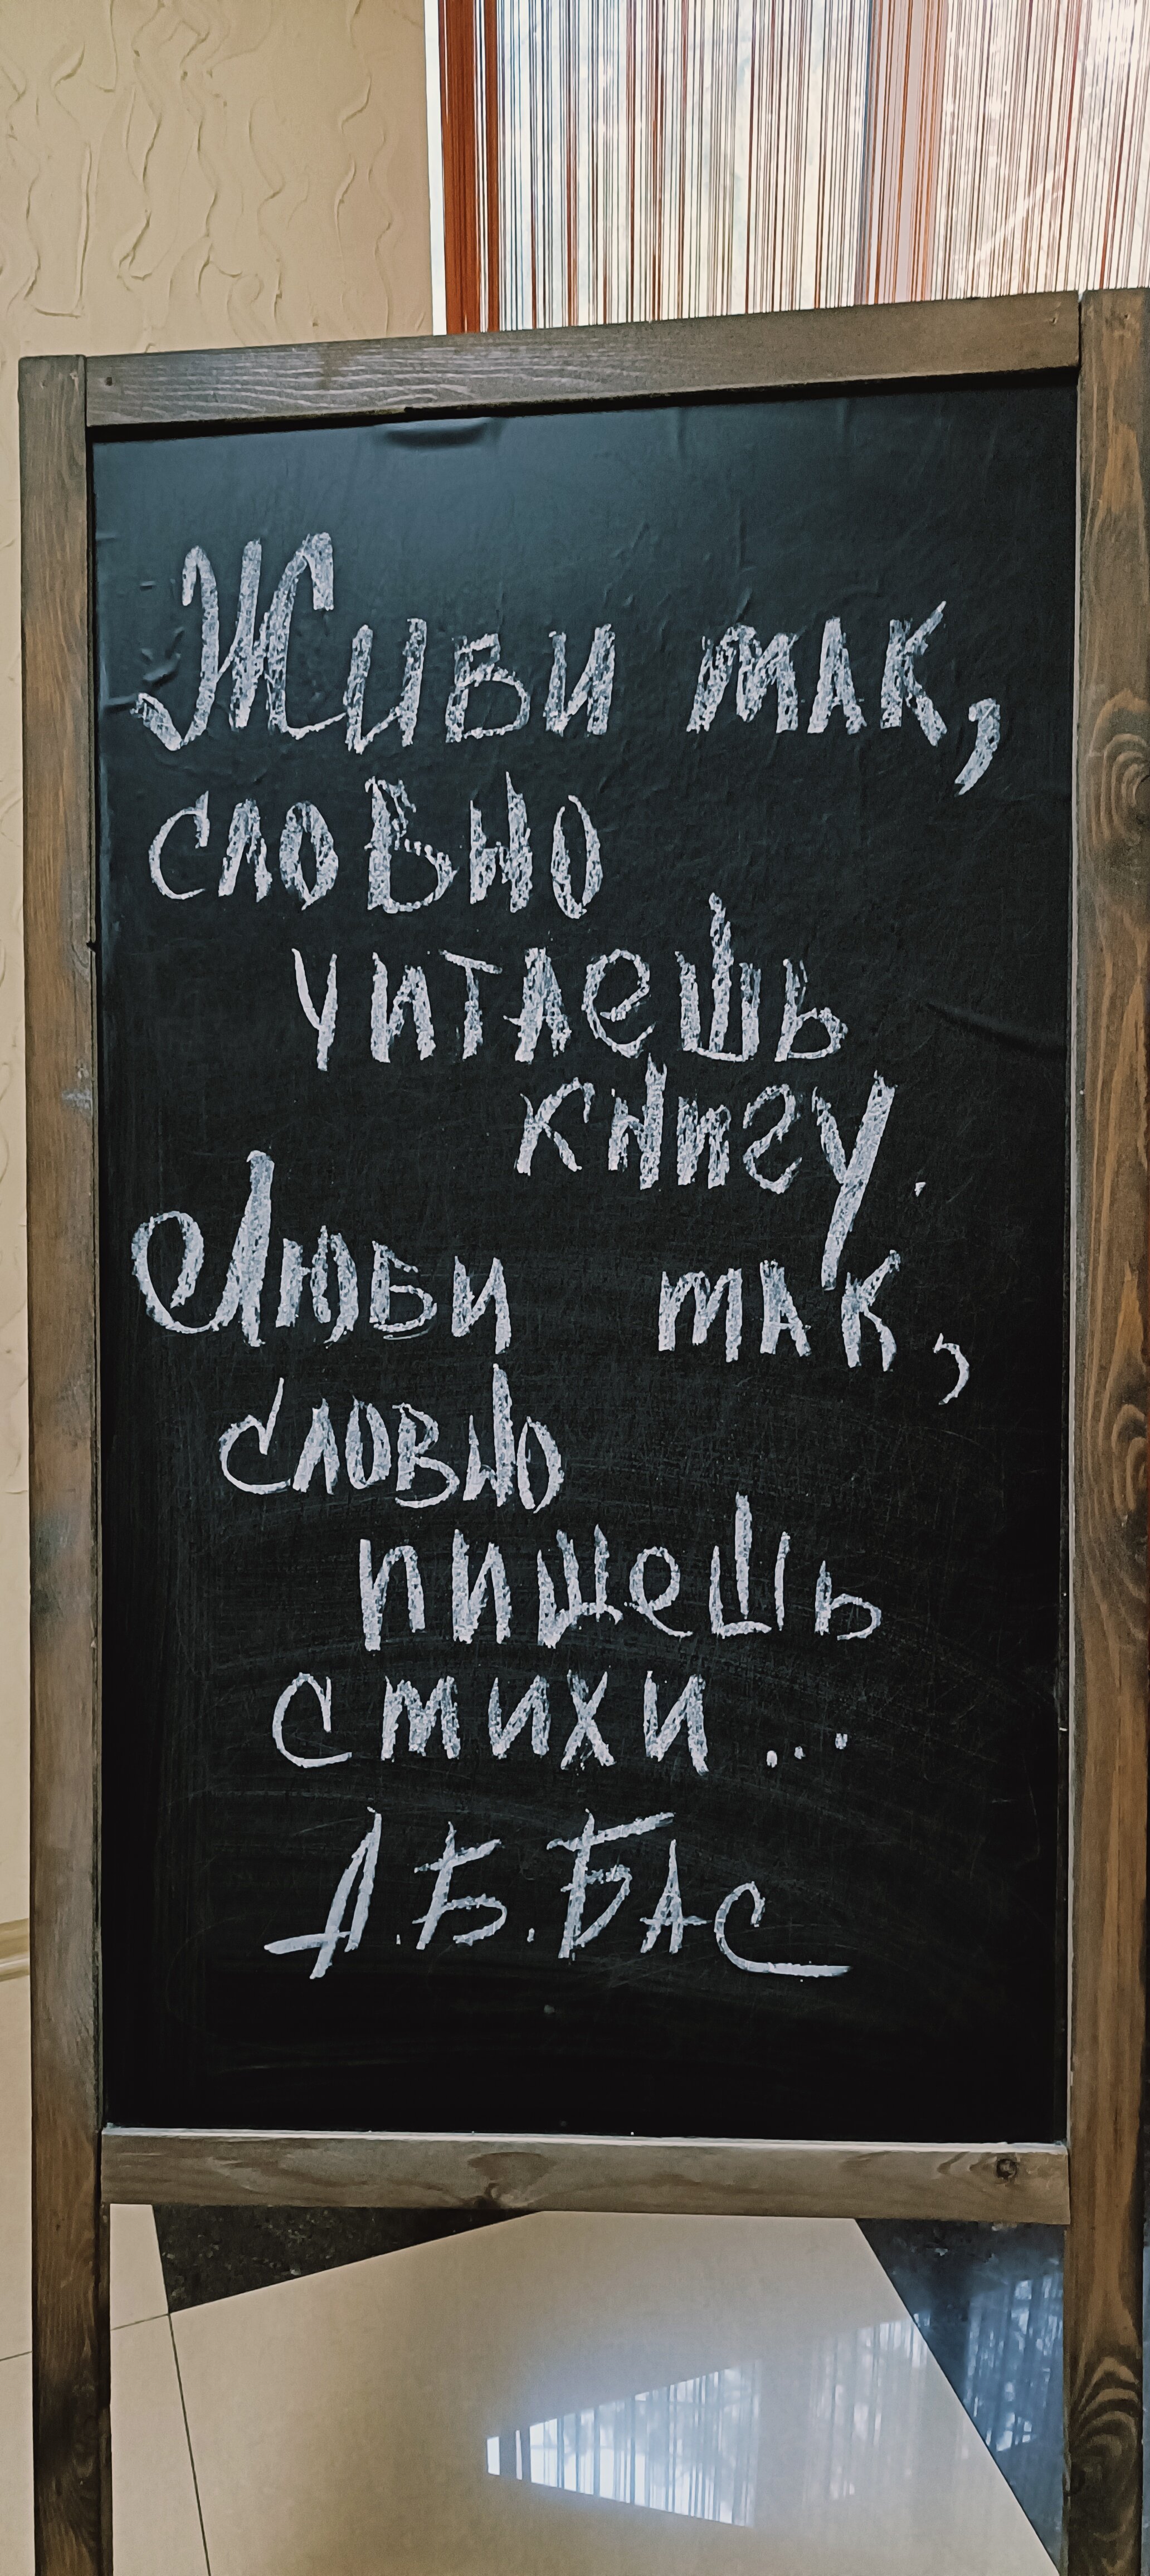 Живи так,
словно
читаешь
книгу.
Люби так,
словно
пишешь
стихи...
А.Б.Бас